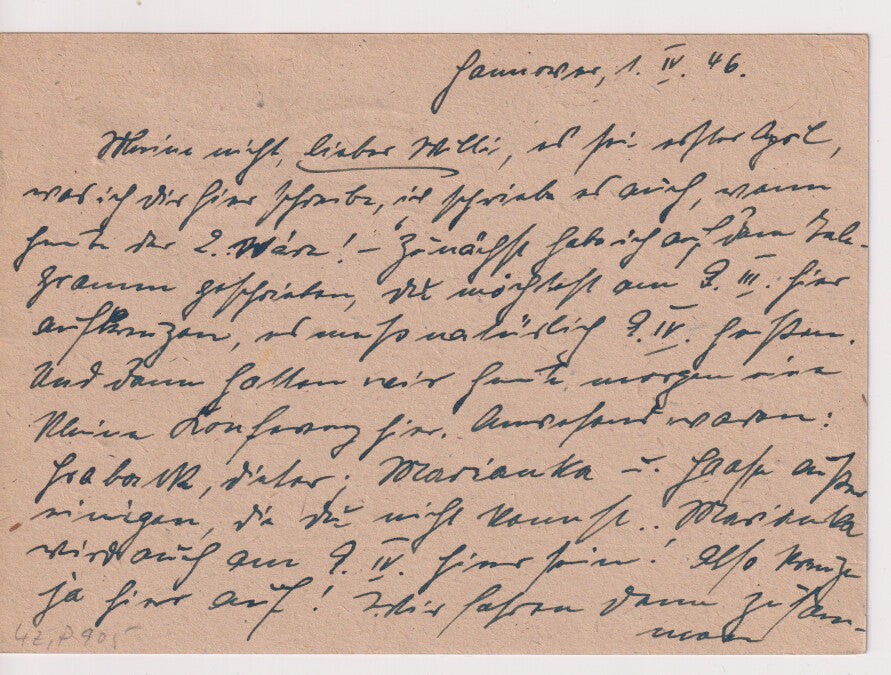 Hannover, 1. IV. 46.
Meine nicht, lieber Willi, es sei erster April,
was ich dir hier schreibe, ich schriebe es auch, wenn
heute der 2. wäre! – Zunächst habe ich auf dem Tele-
gramm geschrieben, du möchtest am 9. III. hier
aufkreuzen, es muss natürlich 9. IV. heißen.
Und dann hatten wir heute morgen eine
kleine Konferenz hier. Anwesend waren:
Dieter, Marianka u. Haase außer
einigen, die du nicht kennst.. Marianka
wird auch am 9. IV. hier sein! Also kreuze
ja hier auf! Wir fahren dann zusam-
men
42, P 905